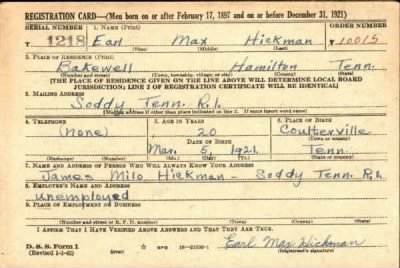 REGISTRATION CARD—(Men born on or after February 17, 1897 and on or before December 31, 1921)
SERIAL NUMBER 1. NAME (Print) ORDER NUMBER
T 1218 Earl Max Hickman T 10015
(First) (Middle) (Last)
2. PLACE OF RESIDENCE (Print)
Bakewell Hamilton Tenn.
(Number and street) (Town, township, village, or city) (County) (State)
[THE PLACE OF RESIDENCE GIVEN ON THE LINE ABOVE WILL DETERMINE LOCAL BOARD
JURISDICTION; LINE 2 OF REGISTRATION CERTIFICATE WILL BE IDENTICAL]
3. MAILING ADDRESS
Soddy Tenn. R.1.
[Mailing address if other than place indicated on line 2. If same insert word same]
4. TELEPHONE 5. AGE IN YEARS 6. PLACE OF BIRTH
(None) 20 Coulterville
DATE OF BIRTH (Town or county)
Mar. 5, 1921 Tenn.
(Exchange) (Number) (Mo.) (Day) (Yr.) (State or country)
7. NAME AND ADDRESS OF PERSON WHO WILL ALWAYS KNOW YOUR ADDRESS
James Milo Hickman — Soddy Tenn. R.1.
8. EMPLOYER'S NAME AND ADDRESS
unemployed
9. PLACE OF EMPLOYMENT OR BUSINESS
(Number and street or R. F. D. number) (Town) (County) (State)
I AFFIRM THAT I HAVE VERIFIED ABOVE ANSWERS AND THAT THEY ARE TRUE.
D. S. S. Form 1
(Revised 1-1-42) (over) GPO Earl Max Hickman
(Registrant's signature)